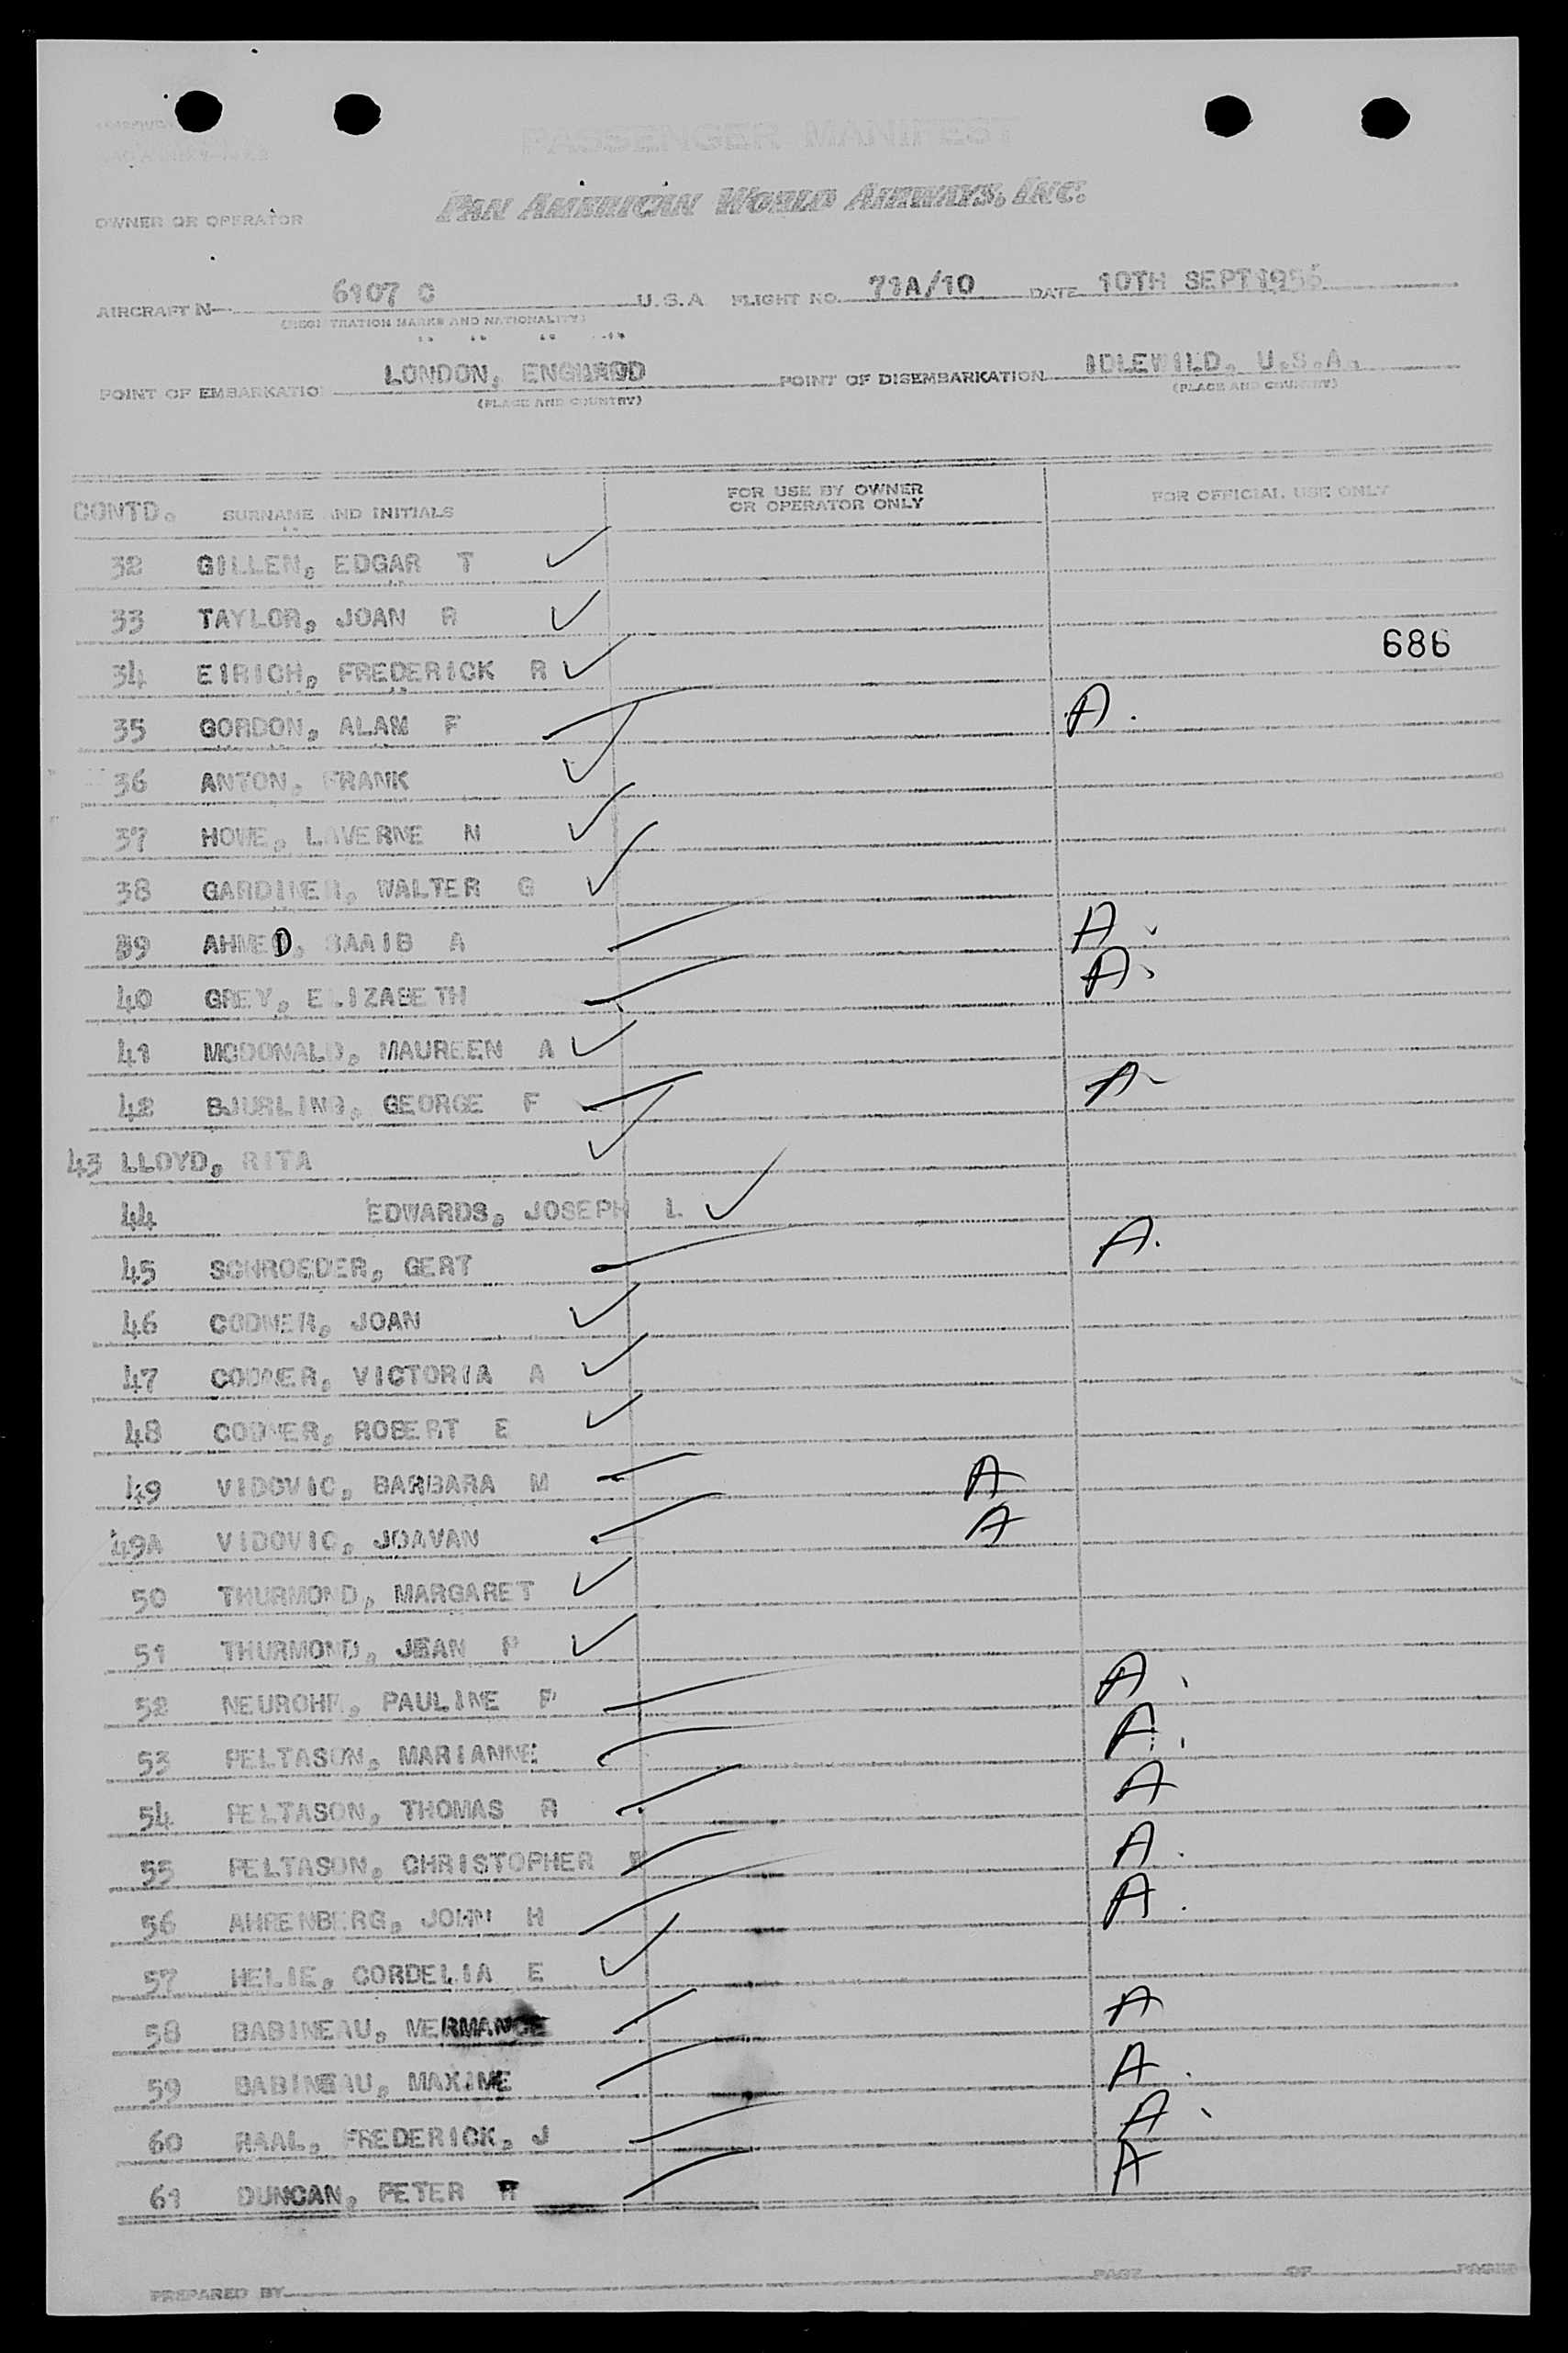 PASSENGER MANIFEST
PAN AMERICAN WORLD AIRWAYS, INC.
OWNER OR OPERATOR
AIRCRAFT N 6107 C U.S.A FLIGHT NO. 71A/10 DATE 10TH SEPT 1955
(REGISTRATION MARKS AND NATIONALITY)
POINT OF EMBARKATION LONDON, POINT OF DISEMBARKATION IDLEWILD, U.S.A.
(PLACE AND COUNTRY) (PLACE AND COUNTRY)
CONTD. SURNAME AND INITIALS FOR USE BY OWNER OR OPERATOR ONLY FOR OFFICIAL USE ONLY
32 GILLEN, EDGAR T ✓
33 TAYLOR, JOAN R ✓
686
34 EIRICH, FREDERICK R ✓
35 GORDON, ALAM F A.
36 ANTON, FRANK ✓
37 HOWE, LAVERNE N ✓
38 GARDINER, WALTER G ✓
39 AHMED, SAAIB A A
40 GREY, ELIZABETH A
41 MCDONALD, MAUREEN A ✓
42 BJURLING, GEORGE F A
43 LLOYD, RITA ✓
44 EDWARDS, JOSEPH L ✓
45 SCHROEDER, GERT A.
46 CODNER, JOAN ✓
47 CODNER, VICTORIA A ✓
48 CODNER, ROBERT E ✓
49 VIDOVIC, BARBARA M A
49A VIDOVIC, JOAVAN A
50 THURMOND, MARGARET ✓
51 THURMOND, JEAN P ✓
52 NEUROHR, PAULINE F A
53 PELTASON, MARIANNE A.
54 PELTASON, THOMAS R A
55 PELTASON, CHRISTOPHER A.
56 AHRENBERG, JOHN H A.
57 HELIE, CORDELIA E ✓
58 BABINEAU, MERMANCE A
59 BABINEAU, MAXIME A.
60 RAAL, FREDERICK, J A
61 DUNCAN, PETER H A
PREPARED BY PAGE OF PAGES